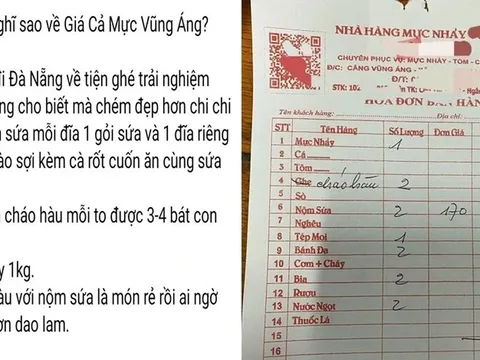 ghĩ sao về Giá Cả Mực Vũng Áng?
ỉ Đà Nẵng về tiện ghé trải nghiệm
ng cho biết mà chém đẹp hơn chi chi
sứa mỗi đĩa 1 gỏi sứa và 1 đĩa riêng
ào sợi kèm cà rốt cuốn ăn cùng sứa
cháo hàu mỗi to được 3-4 bát con
y 1kg.
àu với nộm sứa là món rẻ rồi ai ngờ
ơn dao lam.
NHÀ HÀNG MỰC NHẢY
CHUYÊN PHỤC VỤ: MỰC NHẢY - TÔM -
Đ/C: CẢNG VŨNG ÁNG -
ĐT:
STK: 10
HÓA ĐƠN BÁN HÀN
Tên khách hàng:
Địa chỉ:
STT Tên Hàng Số Lượng Đơn Giá
1 Mực Nhảy 1
2 Cá
3 Tôm
4 Ghẹ cháo hàu 2
5 Sò
6 Nộm Sứa 2 170
7 Nghêu
8 Tép Moi 1
9 Bánh Đa 2
10 Cơm + Cháy
11 Bia 2
12 Rượu
13 Nước Ngọt 2
14 Thuốc Lá
15
16